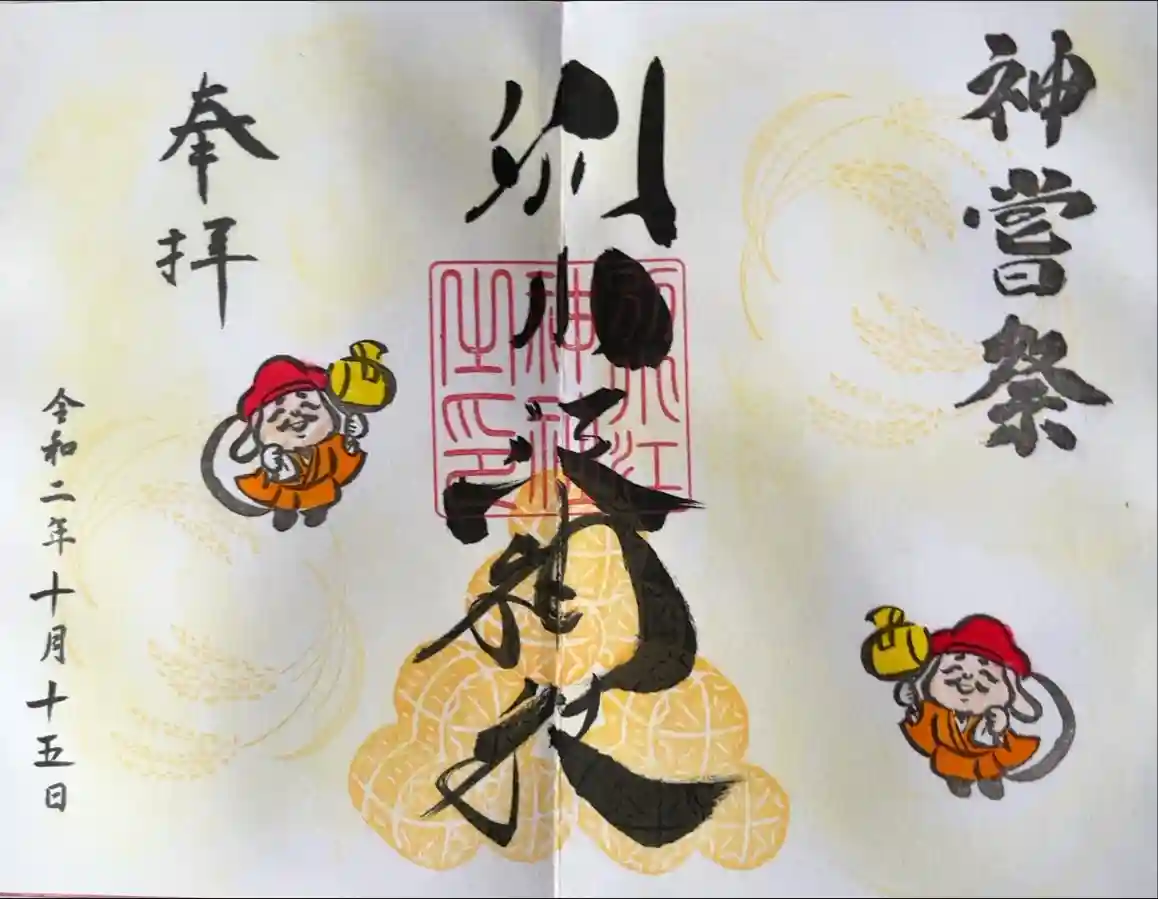 神嘗祭
別小江神社
江
神社
之印
奉拝
令和二年十月十五日